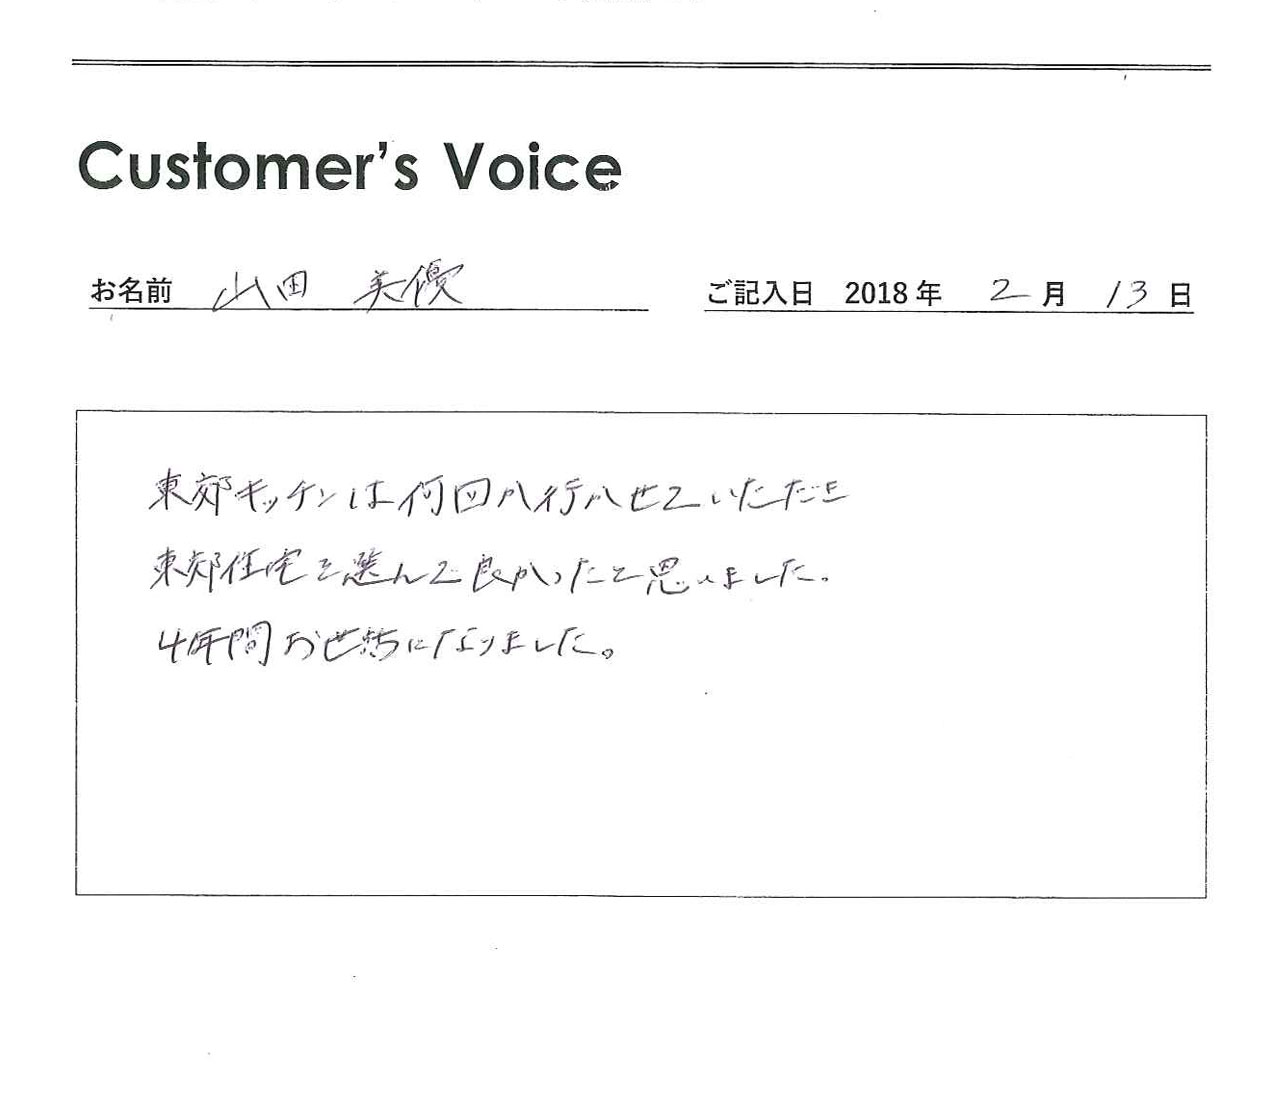 Customer's Voice
お名前 山田 美優
ご記入日 2018年 2月 13日
東郊キッチンは何回か行かせていただき
東郊住宅を選んで良かったと思いました。
4年間お世話になりました。